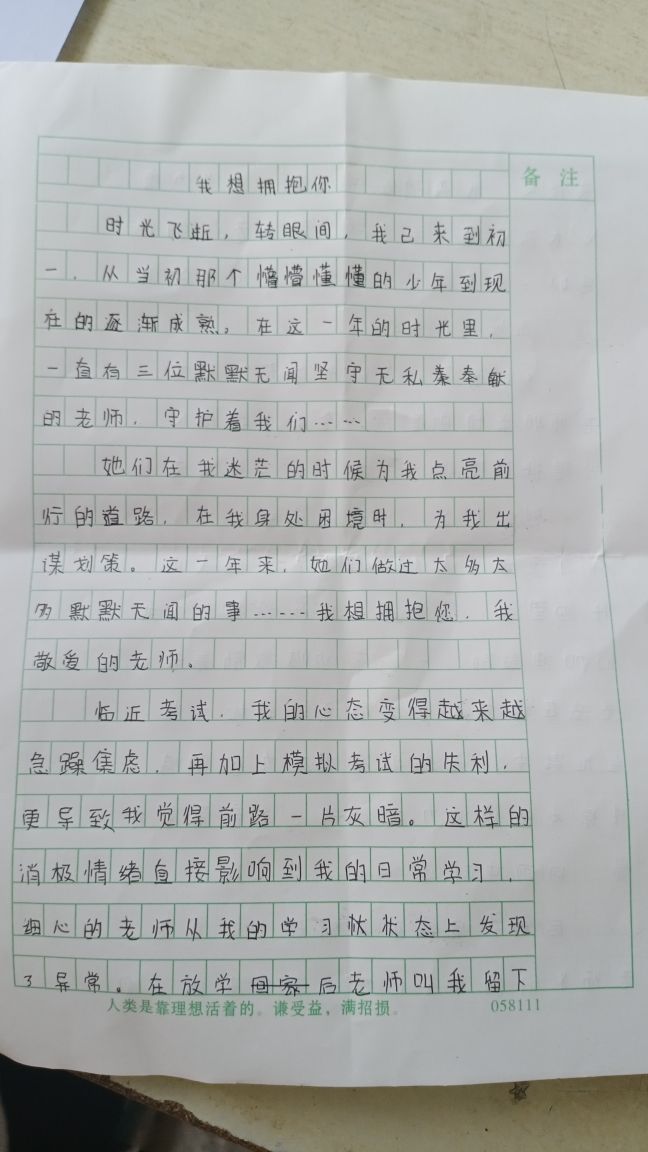 备 注
我想拥抱你
时光飞逝，转眼间，我已来到初
一，从当初那个懵懵懂懂的少年到现
在的逐渐成熟。在这一年的时光里，
一直有三位默默无闻坚守无私奉献
的老师，守护着我们……
她们在我迷茫的时候为我点亮前
行的道路，在我身处困境时，为我出
谋划策。这一年来，她们做过太多太
多默默无闻的事……我想拥抱您，我
敬爱的老师。
临近考试，我的心态变得越来越
急躁焦虑，再加上模拟考试的失利，
更导致我觉得前路一片灰暗。这样的
消极情绪直接影响到我的日常学习，
细心的老师从我的学习状态上发现
了异常。在放学回家后老师叫我留下
人类是靠理想活着的。谦受益，满招损。 058111